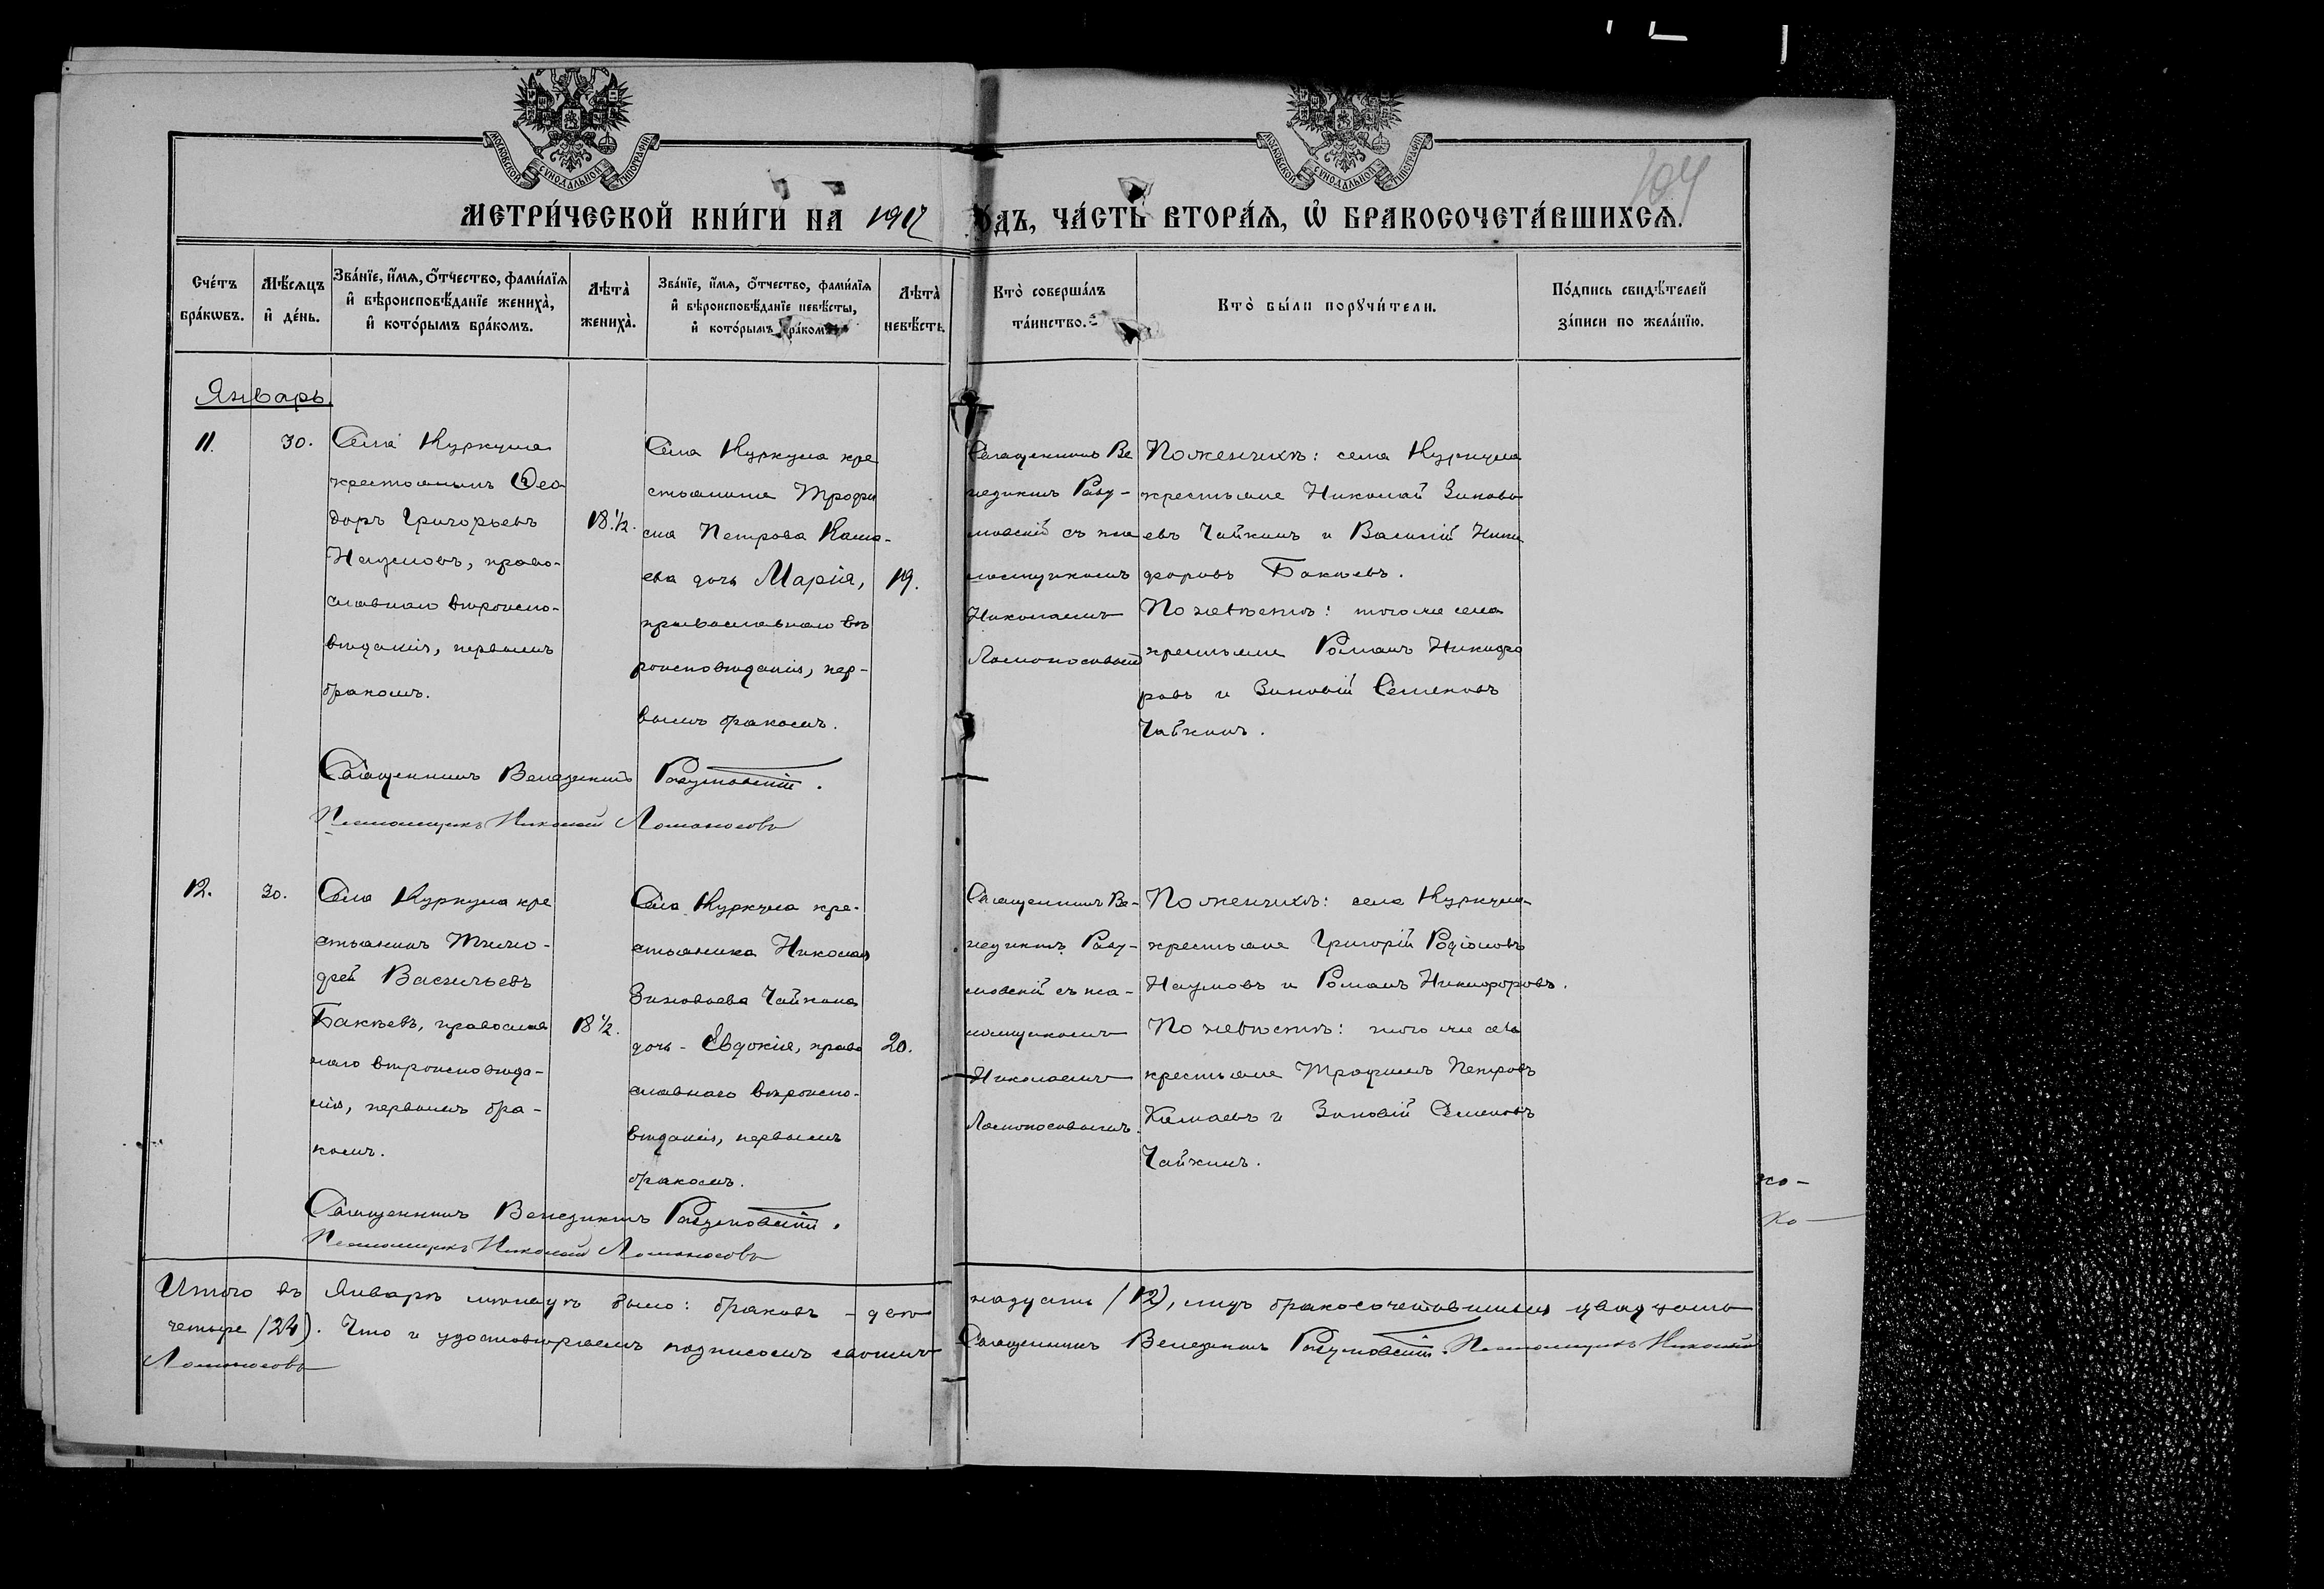 104
МОСКОВСКОЙ СѴНОДАЛЬНОЙ ТИПОГРАФІИ
МОСКОВСКОЙ СѴНОДАЛЬНОЙ ТИПОГРАФІИ
МЕТРИ́ЧЕСКОЙ КНИ́ГИ НА 1917 ОДЪ, ЧА́СТЬ ВТОРА́Я, Ѡ БРАКОСОЧЕТА́ВШИХСЯ.
Сче́тъ
бра́кѡвъ.
Мѣ́сяцъ
и҆ де́нь.
Зва́нїе, и҆́мя, ѻ҆́тчество, фами́лїя
и҆ вѣроисповѣ́данїе жениха̀,
и҆ кото́рымъ бра́комъ.
Лѣта̀
жениха̀.
Зва́нїе, и҆́мя, ѻ҆́тчество, фами́лїя
и҆ вѣроисповѣ́данїе невѣ́сты,
и҆ кото́рымъ бра́комъ.
Лѣта̀
невѣ́сты.
Кто̀ соверша́лъ
та́инство.
Кто̀ бы́ли порꙋчи́тели.
По́дпись свидѣ́телей
за́писи по жела́нїю.
Январь.
11.
30.
Села Куркула
крестьянинъ Ѳео
доръ Григорьевъ
Наумовъ, право-
славнаго вѣроиспо-
вѣданія, первымъ
бракомъ.
18 1/2.
Села Куркула кре
стьянина Трофи
ма Петрова Кама-
ева дочь Марія,
православнаго вѣ
роисповѣданія, пер-
вымъ бракомъ.
19.
Священникъ Ве
недиктъ Разу-
мовскій съ пса
ломщикомъ
Николаемъ
Ломоносовымъ
По женихѣ: села Куркула
крестьяне Николай Зиновь
евъ Чайкинъ и Василій Ники
форовъ Бакѣевъ.
По невѣстѣ: того же села
крестьяне Романъ Никифо
ровъ и Зиновій Семеновъ
Чайкинъ.
Священникъ Венедиктъ Разумовскій.
Псаломщикъ Николай Ломоносовъ
12.
30.
Села Куркула кре
стьянинъ Тимо-
фей Васильевъ
Бакѣевъ, православ
наго вѣроисповѣда-
нія, первымъ бра-
комъ.
18 1/2.
Села Куркула кре-
стьянина Николая
Зиновьева Чайкина
дочь - Евдокія, право
славнаго вѣроиспо-
вѣданія, первымъ
бракомъ.
20.
Священникъ Ве-
недиктъ Разу-
мовскій съ пса-
ломщикомъ
Николаемъ
Ломоносовымъ.
По женихѣ: села Куркула
крестьяне Григорій Родіоновъ
Наумовъ и Романъ Никифоровъ.
По невѣстѣ: того же села
крестьяне Трофимъ Петровъ
Камаевъ и Зиновій Семеновъ
Чайкинъ.
Священникъ Венедиктъ Разумовскій.
Псаломщикъ Николай Ломоносовъ
но-
ко-
Итого въ Январѣ мѣсяцѣ было: браковъ - двѣ надцать (12), лицъ бракосочетавшихся двадцать
четыре (24). Что и удостовѣряемъ подписомъ своимъ Священникъ Венедиктъ Разумовскій. Псаломщикъ Николай
Ломоносовъ